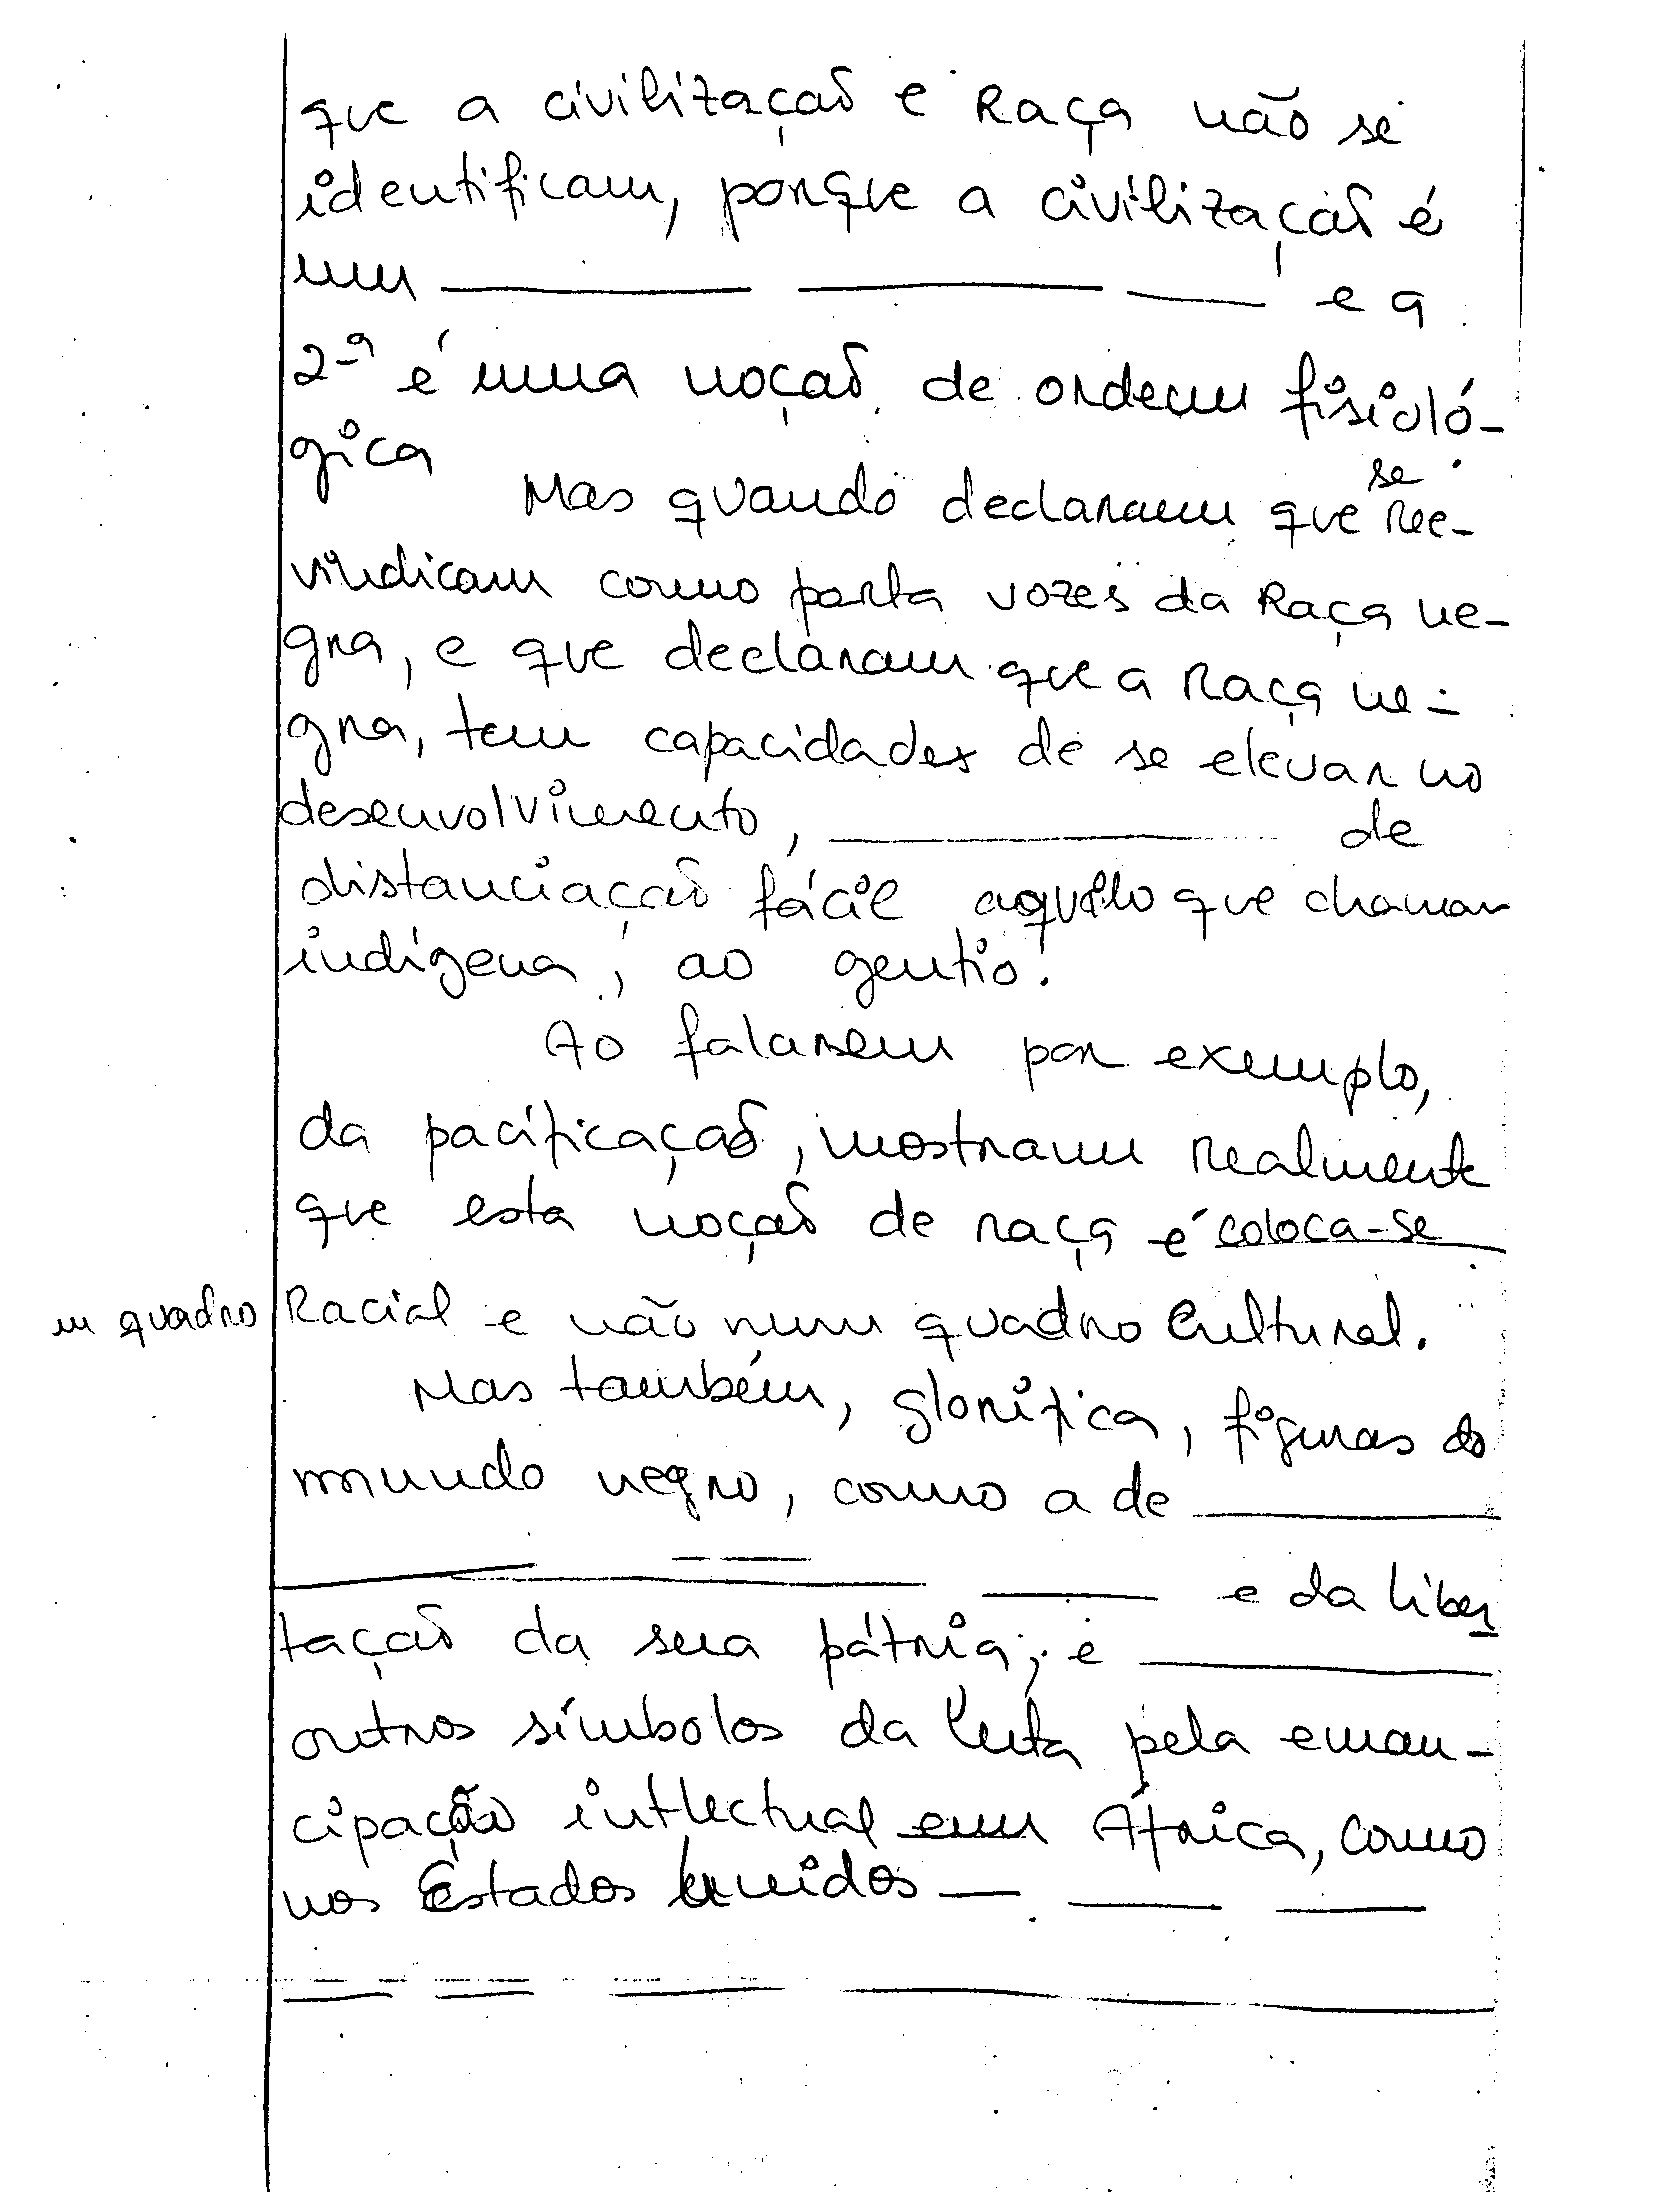 que a civilização e Raça não se
identificam, porque a civilização é
um ______ ______ ___ e a
2-a é uma noção de ordem fisioló-
gica
se
Mas quando declararem que Ree-
vindicam como porta vozes da Raça ne-
gra, e que declaram que a Raça ne-
gra, tem capacidades de se elevar no
desenvolvimento, ______ de
distanciação fácil aquilo que chamam
indígena, ao gentio.
Ao falarem por exemplo,
da pacificação, mostram realmente
que esta noção de raça é coloca-se
m quadro Racial e não num quadro Cultural.
Mas também, glorifica, figuras do
mundo negro, como a de ______
______ __ ______ ___ e da liber
tação da sua pátria; e ______
outros símbolos da luta pela eman-
cipação intlectual em África, como
nos Estados Unidos — ___ ___
___ ___ ___ ______